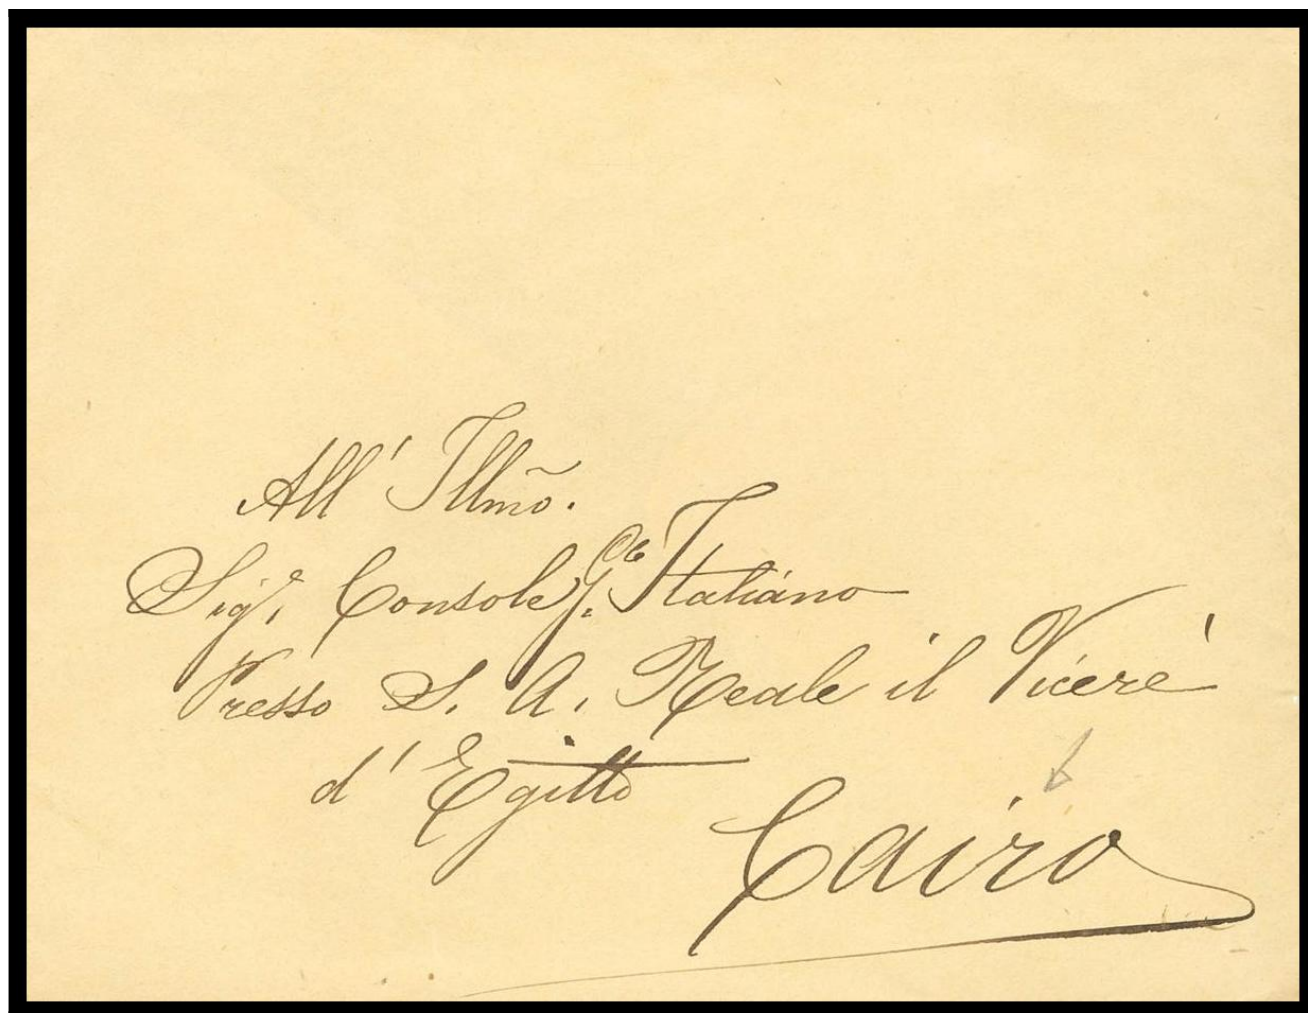 All' Illmõ.
Sigr. Console G.le Italiano
Presso S. A. Reale il Vicerè
d' Egitto
Cairo